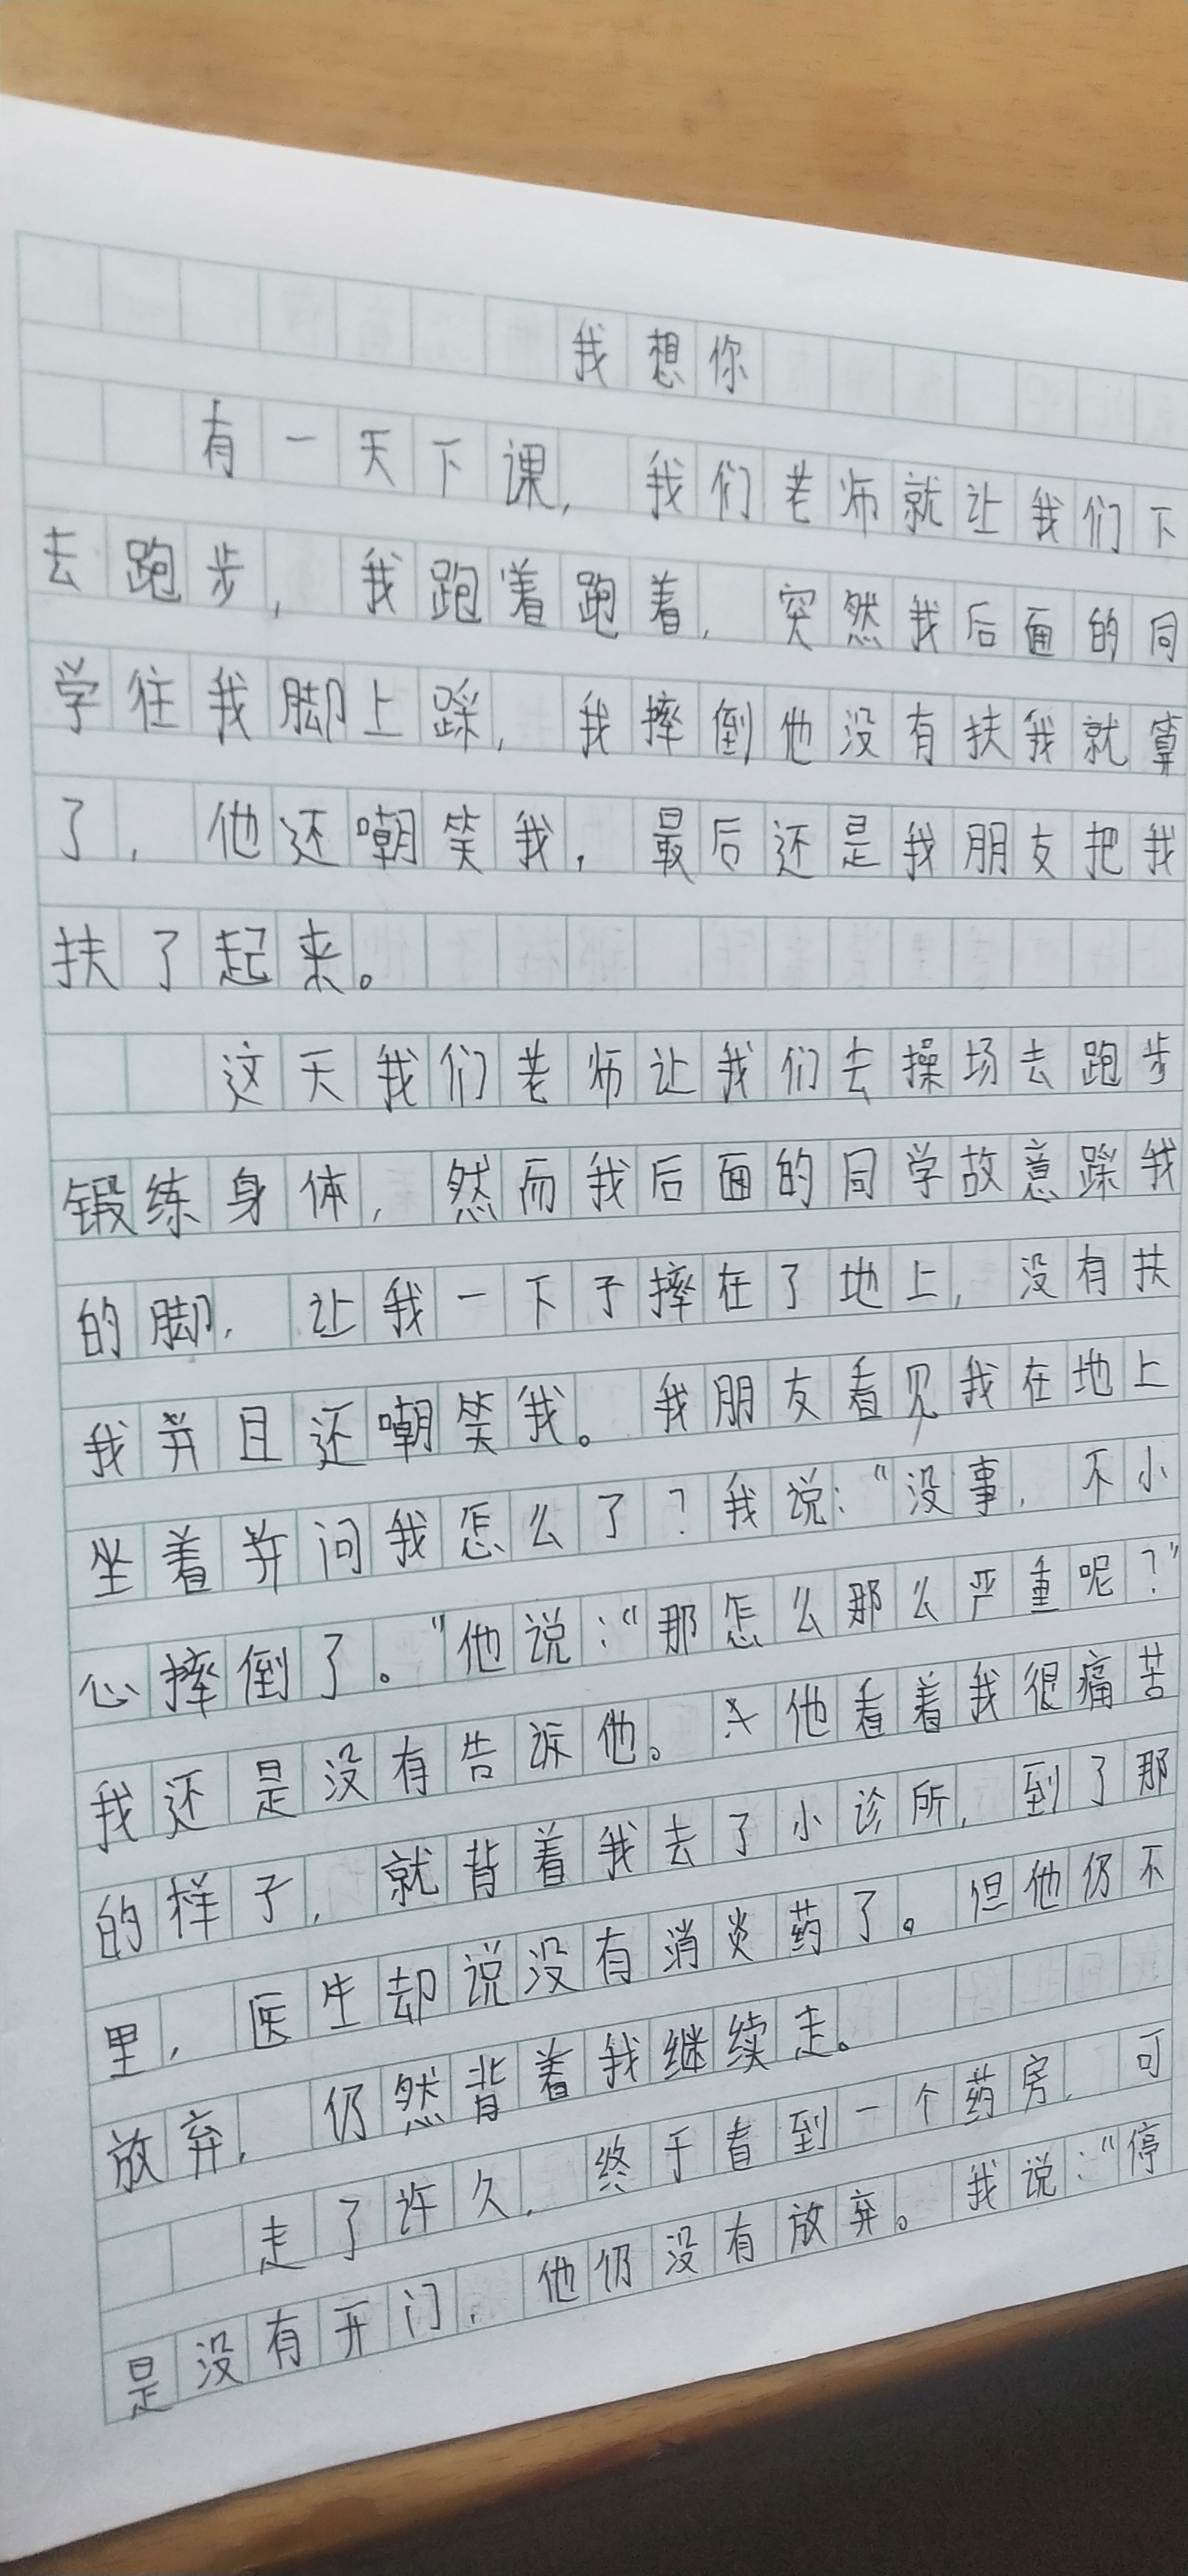 我想你
有一天下课，我们老师就让我们下
去跑步，我跑着跑着，突然我后面的同
学往我脚上踩，我摔倒他没有扶我就算
了，他还嘲笑我，最后还是我朋友把我
扶了起来。
这天我们老师让我们去操场去跑步
锻练身体，然而我后面的同学故意踩我
的脚，让我一下子摔在了地上，没有扶
我并且还嘲笑我。我朋友看见我在地上
坐着并问我怎么了？我说：“没事，不小
心摔倒了。”他说：“那怎么那么严重呢？”
我还是没有告诉他。他看着我很痛苦
的样子，就背着我去了小诊所，到了那
里，医生却说没有消炎药了。但他仍不
放弃，仍然背着我继续走。
走了许久，终于看到一个药房，可
是没有开门，他仍没有放弃。我说：“停